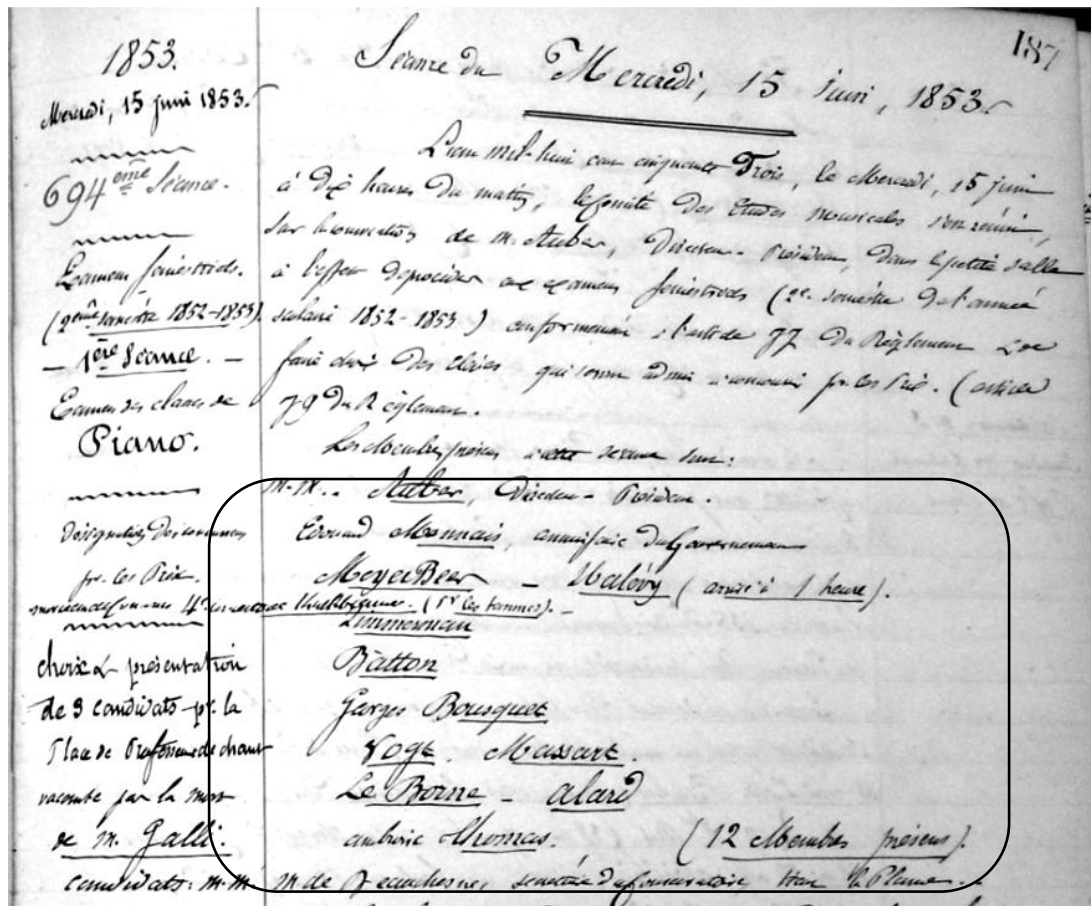 187
1853.
Séance du Mercredi, 15 Juin, 1853.
Mercredi, 15 juin 1853.
694ème Séance.
Examens semestriels.
(2ème semestre 1852-1853).
- 1ère Séance. -
Examen des classes de
Piano.
Désignation des concurrents
pr. les Prix.
choix & présentation
de 3 candidats pr. la
Place de Professeur de chant
vacante par la mort
de M. Galli.
candidats: M.M
L'an mil-huit cent cinquante Trois, le Mercredi, 15 juin
à Dix heures du matin, le Comité des études musicales s'est réuni,
sur la convocation de M. Auber, Directeur-Président, dans la petite salle
à l'effet de procéder aux examens semestriels (2e. semestre de l'année
scolaire 1852-1853) conformément à l'article 77 du Règlement & de
faire choix des élèves qui seront admis à concourir pr. les Prix. (article
79 du Règlement.
Les Membres présens à cette séance sont:
M.M.. Auber, Directeur-Président.
Edouard Monnais, commissaire du Gouvernement
MeyerBeer - Halévy (arrivé à 1 heure).
Zimmerman
Batton
Georges Bousquet
Vogt Massart.
Le Borne - alard
ambroise Thomas. (12 Membres présens).
M de Beauchesne, secrétaire du Conservatoire, tient la Plume.